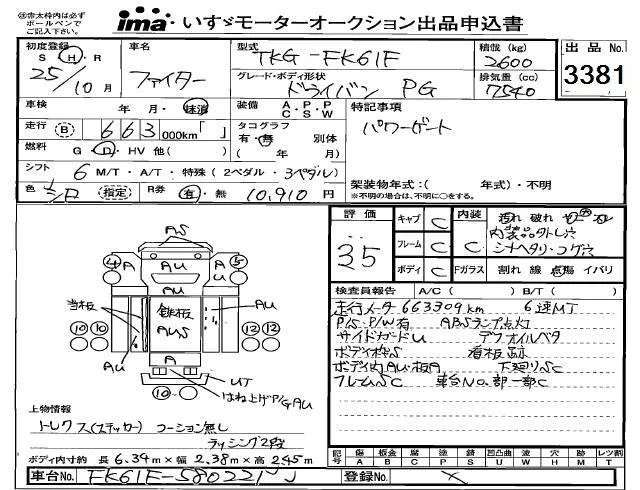 ㊟太枠内は必ず
ボールペンで
ご記入下さい。
ima いすゞモーターオークション出品申込書
初度登録 車名 型式 積載(kg) 出品No.
S H・R ファイター TKG-FK61F 2600 3381
25年10月 グレード・ボディ形状 排気量(cc)
ドライバン PG 7540
車検 年・月・抹消 装備 A・P・P C・S・W 特記事項
走行 B 663000km「 」 タコグラフ パワーゲート
有・無 別体
燃料 G・D・HV 他( ) ( 年 月)
シフト 6 M/T・A/T・特殊(2ペダル・3ペダル) 架装物年式:( 年式)・不明
※不明の場合は、不明に○をする。
色 シロ 指定 R券 有・無 10,910円
評価 キャブ C 内装 汚れ 破れ
35 フレーム C C 内装品外レ穴
シナヘタリ・コゲ穴
ボディ C Fガラス 割れ 線 点傷 イバリ
AS
4 A AU A 5
AU
当板 鉄板 AUS AU
10 10 12 12
AU A
UT
10 はね上げP/G AU
検査員報告 A/C( ) B/T( )
走行メータ 663309km 6速MT
P/S・P/W有 ABSランプ点灯
サイドガードU デフオイルベタ
ボディキズS 看板跡
ボディ内AU・板A 下廻りSC
フレームSC 車台No.部一部C
上物情報
トレクス(ステッカー) コーション無し
ラッシング2段
ボディ内寸約 長6.34m×幅2.38m×高2.45m
記号 傷 板金 腐 塗 錆 凹凸曲 波 穴 跡 レツ割
A B C P S U W H M T
車台No. FK61F-580221
登録No.